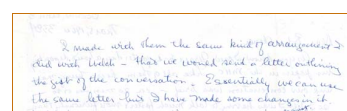 I made with them the same kind of arrangement I
did with Welch - that we would send a letter outlining
the gist of the conversation. Essentially we can use
the same letter but I have made some changes in it.